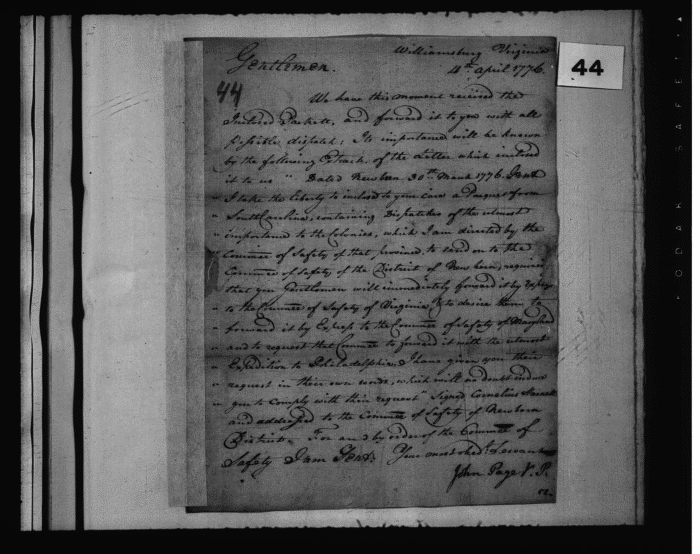 Williamsburg Virginia
Gentlemen.
4th April 1776.
44
44
We have this moment received the
Inclosed Packett, and forward it to you with all
possible dispatch; Its importance will be known
by the following Extract of the Letter which inclosed
it to us " Dated Newbern 30th March 1776. Gent
" I take the liberty to inclose to your care a Paquet from
" South Carolina, containing Dispatches of the utmost
" importance to the Colonies, which I am directed by the
Commee of Safety of that province, to send on to the
Commee of Safety of the District of New bern, requiring
that you Gentlemen will immediately forward it by Express
" to the Commee of Safety of Virginia, & to desire them to
" forward it by Express to the Commee of Safety of Maryland
" and to request that Commee to forward it with the utmost
" Expedition to Philadelphia. I have given you their
" request in their own words, which will no doubt induce
" you to comply with their request" Signed Cornelius Harnett
and addressed to the Commee of Safety of Newbern
District. For and by order of the Commee of
Safety I am Gent: Your most obedt Servant
John Page V. P.